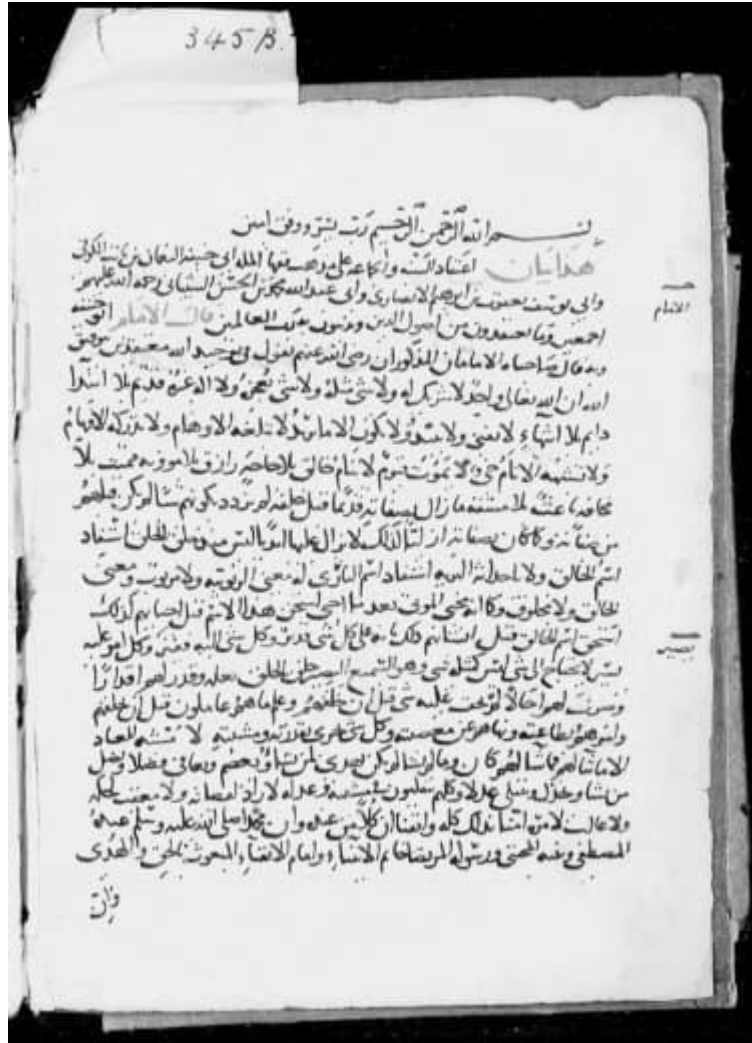 345 B.
بسم الله الرحمن الرحيم رب يسر ووفق امين
هذا بيان اعتقاد السنه والجماعه على مذهب فقها المله ابى حنيفه النعمان بن ثابت الكوفى
وابى يوسف يعقوب بن ابرهيم الانصارى وابى عبد الله محمد بن الحسن الشيبانى رحمة الله عليهم
الامام
اجمعين وما يعتقدون من اصول الدين ويدينون به رب العالمين قال الامام ابو حنيفه
وبه قال صاحباه الامامان المذكوران رضى الله عنهم نقول فى توحيد الله معتقدين بتوفيق
الله ان الله تعالى واحد لا شريك له ولا شى مثله ولا شى يعجزه ولا اله غيره قديم بلا ابتدا
دايم بلا انتهاء لا يفنى ولا يبيد ولا يكون الا ما يريد لا تبلغه الاوهام ولا تدركه الافهام
ولا تشبهه الانام حى لا يموت قيوم لا ينام خالق بلا حاجه رازق بلا مونه مميت بلا
مخافه باعث بلا مشقه ما زال بصفاته قديما قبل خلقه لم يزدد بكونهم شيا لم يكن قبلهم
من صفاته وكما كان بصفاته ازليا كذلك لا يزال عليها ابديا ليس منذ خلق الخلق استفاد
اسم الخالق ولا باحداثه البريه استفاد اسم البارى له معنى الربوبيه ولا مربوب ومعنى
الخالق ولا مخلوق وكما انه محيى الموتى بعد ما احيى استحق هذا الاسم قبل احيايهم كذلك
استحق اسم الخالق قبل انشايهم ذلك بانه على كل شى قدير وكل شى اليه فقير وكل امر عليه
يسير لا يحتاج الى شى ليس كمثله شى وهو السميع البصير خلق الخلق بعلمه وقدر لهم اقدارا
بصير
وضرب لهم اجالا لم يخف عليه شى قبل ان خلقهم وعلم ما هم عاملون قبل ان خلقهم
وامرهم بطاعته ونهاهم عن معصيته وكل شى يجرى بقدرته ومشيته لا مشيه للعباد
الا ما شا لهم فما شا لهم كان وما لم يشا لم يكن يهدى من يشا ويعصم ويعافى فضلا ويضل
من يشا ويخذل ويبتلى عدلا وكلهم متقلبون فى مشيته وعدله لا راد لقضائه ولا معقب لحكمه
ولا غالب لامره امنا بذلك كله وايقنا ان كلا من عنده وان محمدا صلى الله عليه وسلم عبده
المصطفى ونبيه المجتبى ورسوله المرتضا خاتم الانبياء وامام الاتقياء المبعوث بالحق والهدى
وان